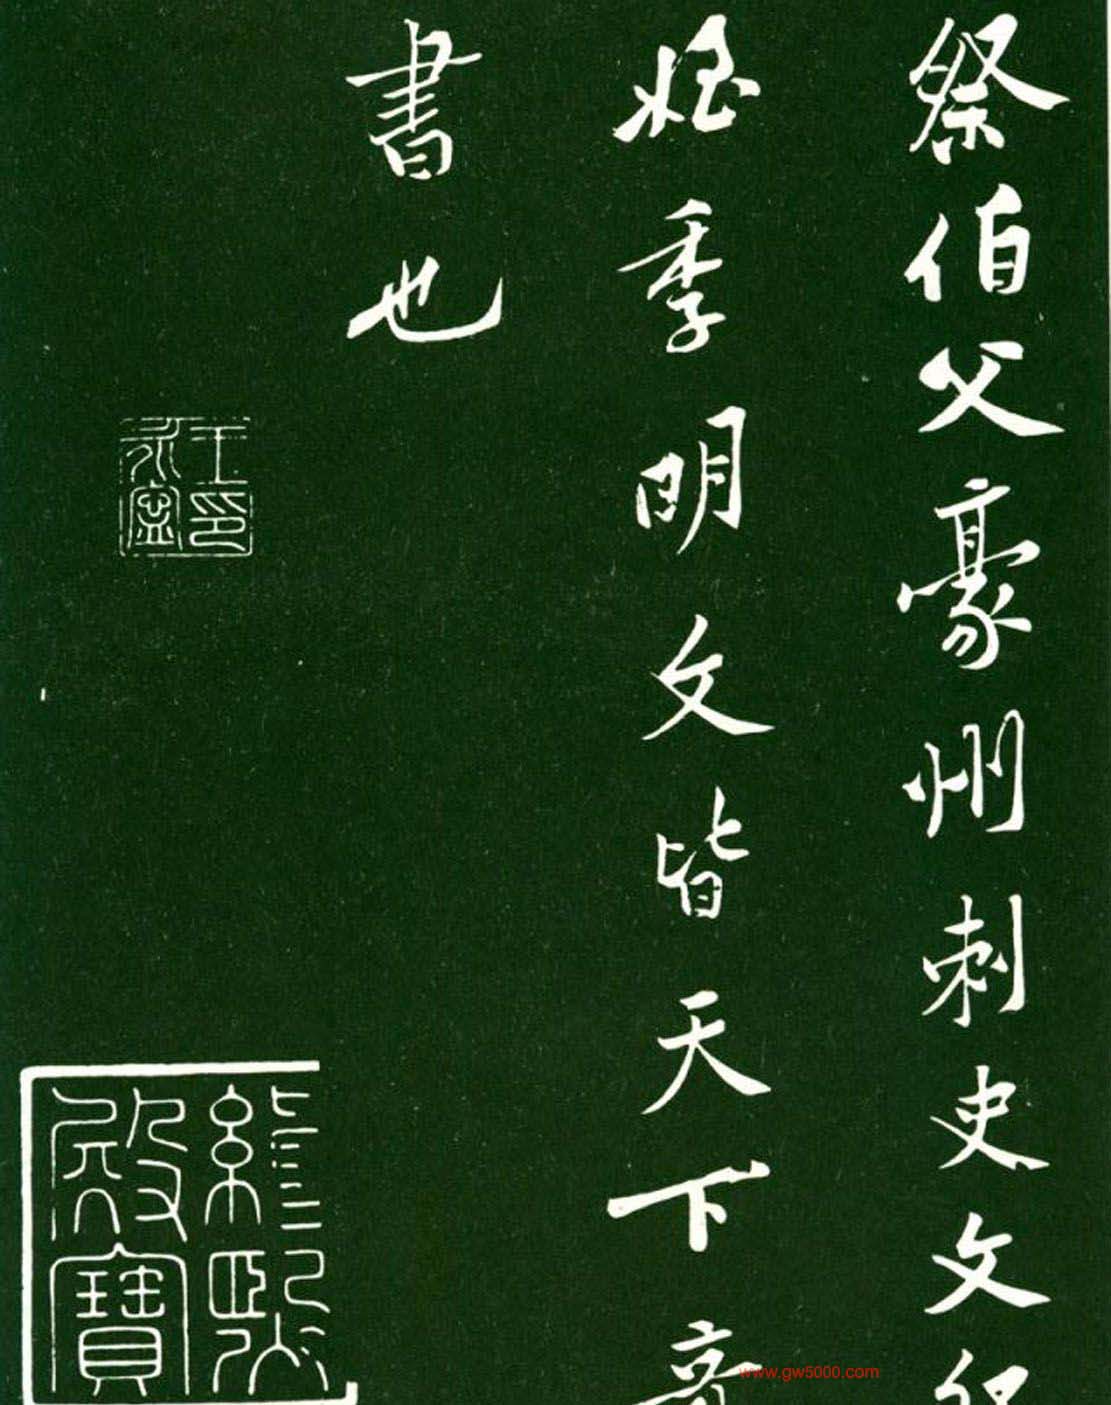 祭伯父豪州刺史文祭
姪季明文皆天下奇
書也
王印永寧
緝熙殿寶
www.gw5000.com